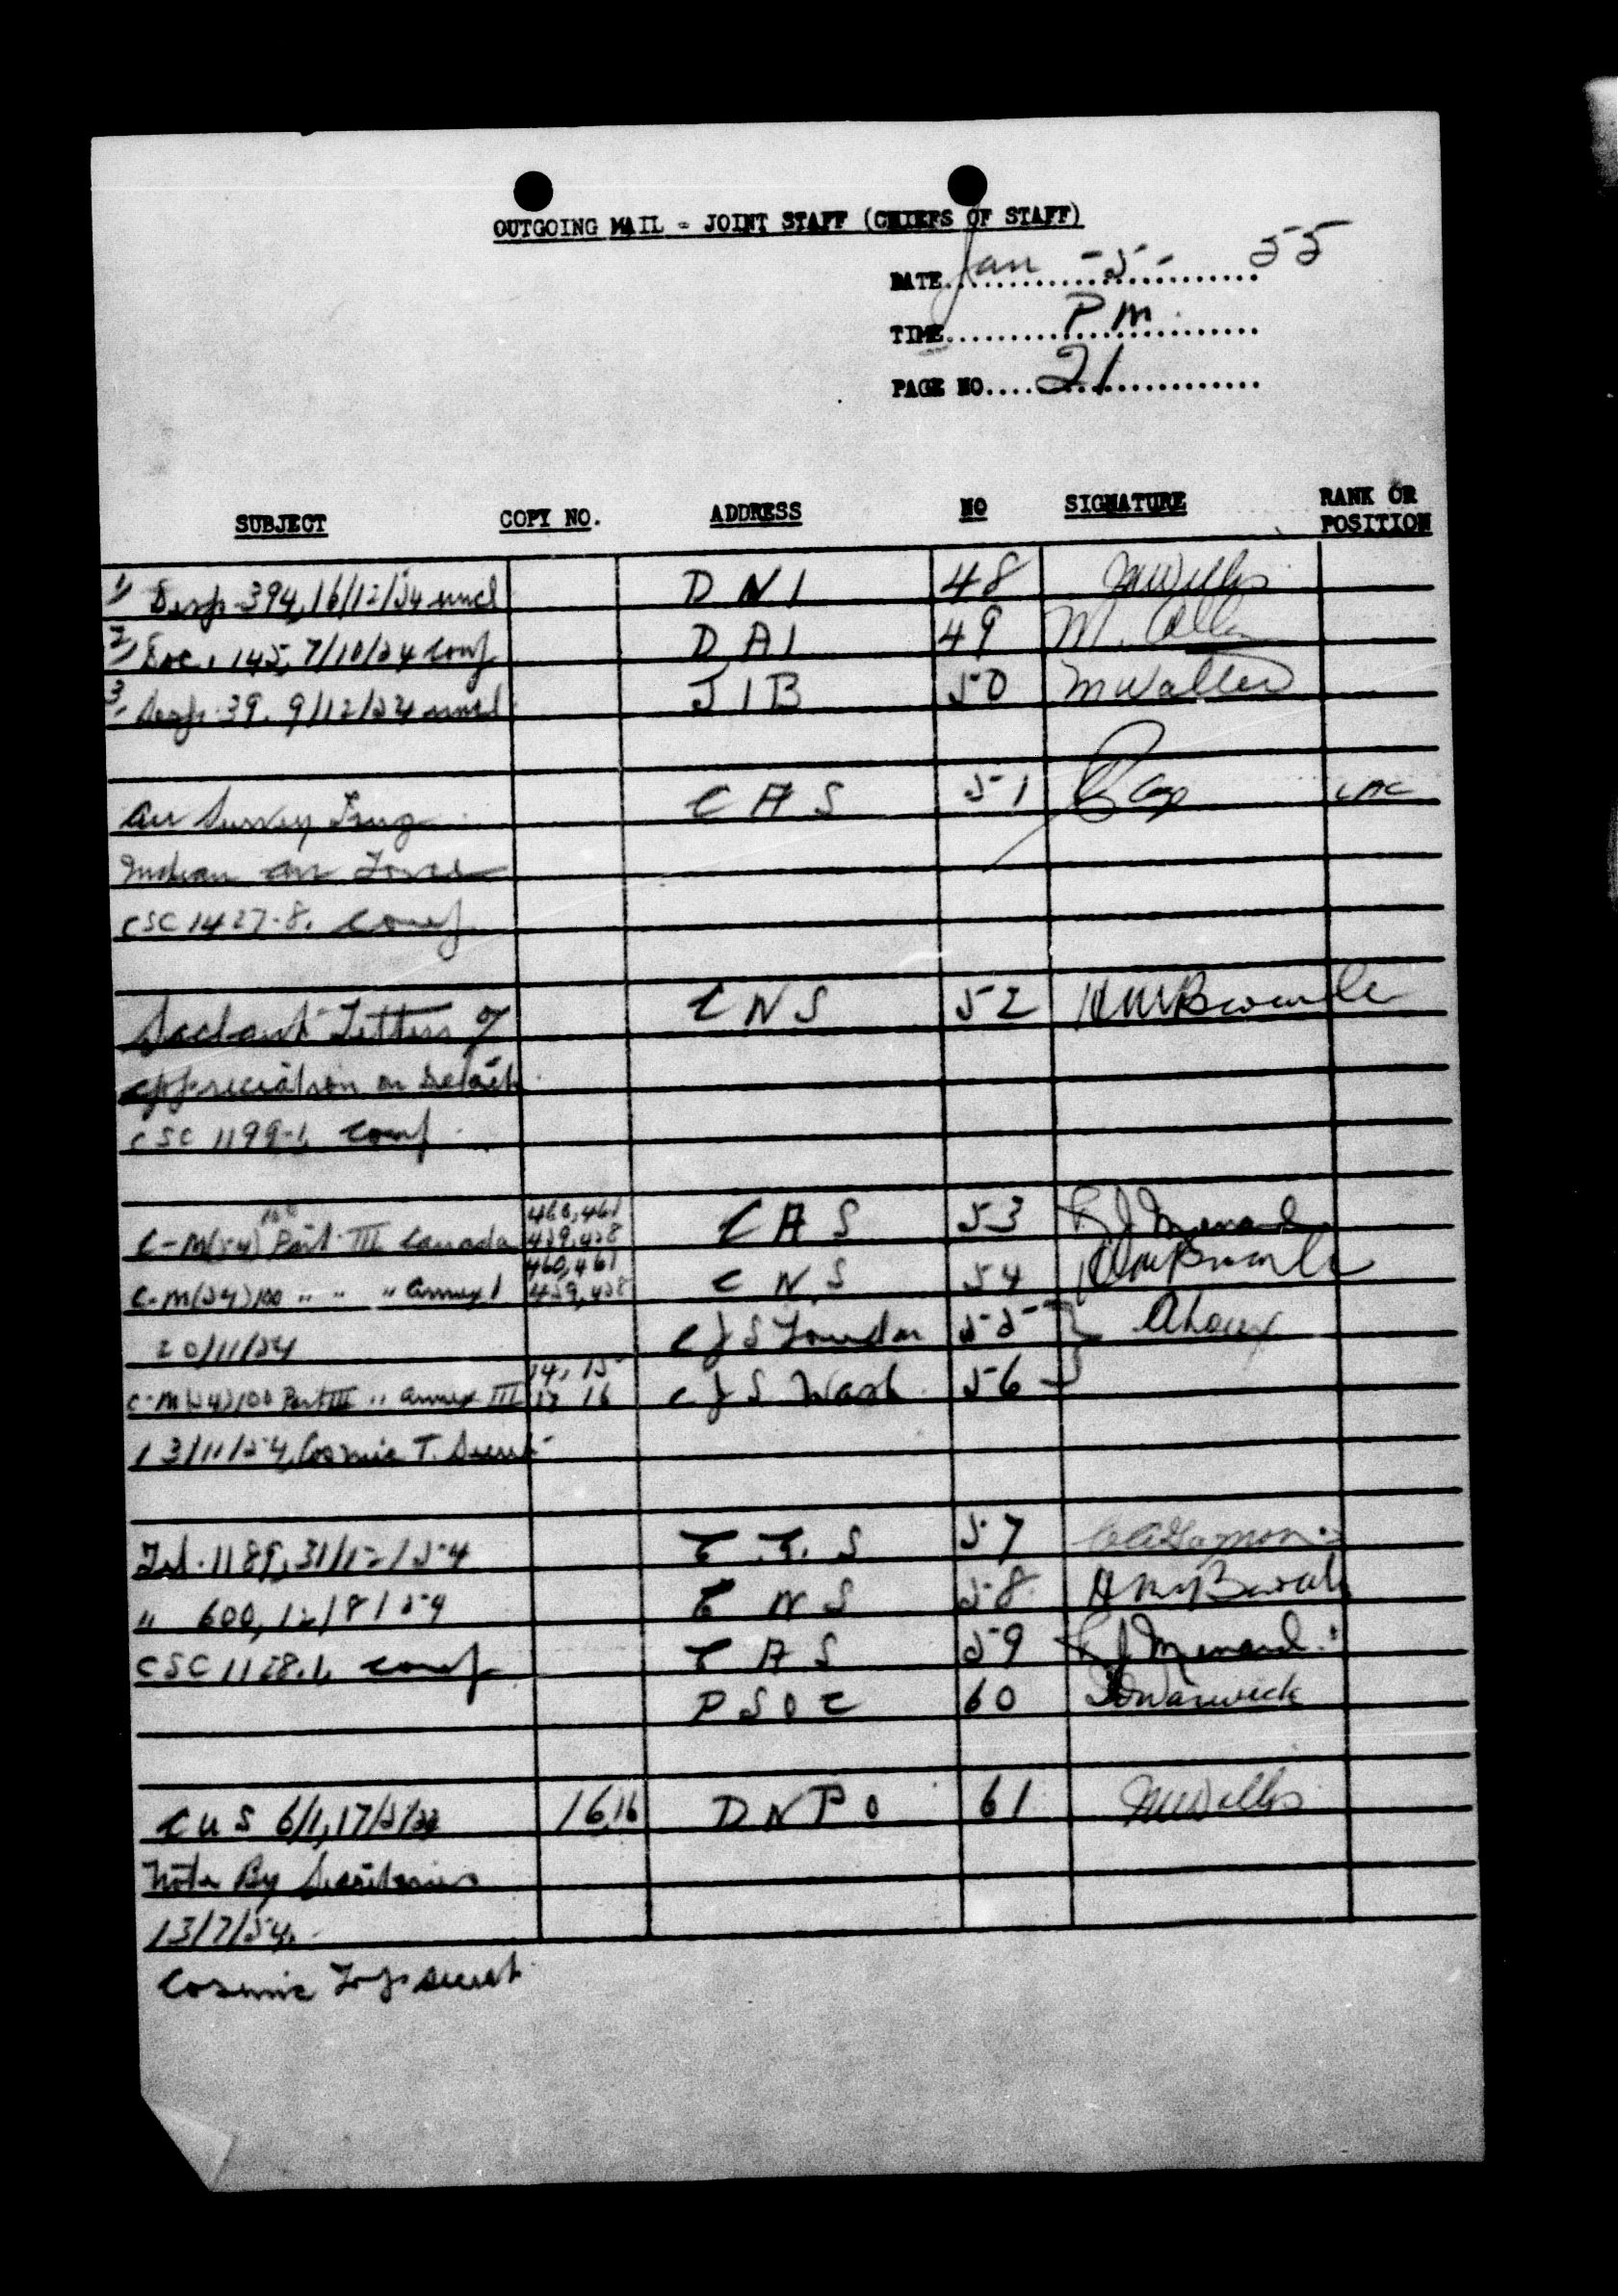 OUTGOING MAIL - JOINT STAFF (CHIEFS OF STAFF)
DATE Jan -5- 55
TIME P M.
PAGE NO. 21
SUBJECT COPY NO. ADDRESS NO SIGNATURE RANK OR POSITION
1, Desp. 394, 16/12/54 uncl D N I 48 MWillis
2, Doc. 145, 7/10/54 conf D A I 49 M.
3, Desp. 39. 9/12/54 uncl J I B 50 MWalled
Air Survey C A S 51 LAC
Indian Air Force
CSC 1427-8. Conf
Letters of C N S 52
appreciation on
CSC 1199-1, conf
C-M(54)100 Part III Canada 460,461 459,458 C A S 53 RJ Menard
C-M(54)100 " " " Annex I 460,461 459,458 C N S 54
20/11/54 C J S London 55
C-M(54)100 Part III " Annex III 14, 15 17 16 C J S Wash. 56
13/11/54, Cosmic T. Secret
Tel. 1189, 31/12/54 C.G.S 57
" 600, 12/8/54 C N S 58
CSC 1128.1, conf C A S 59 RJ Menard
P S O C 60 Warwick
C U S 6/1, 16 16 D N P O 61 MWillis
Note By Secretaries
13/7/54.
Cosmic Top Secret